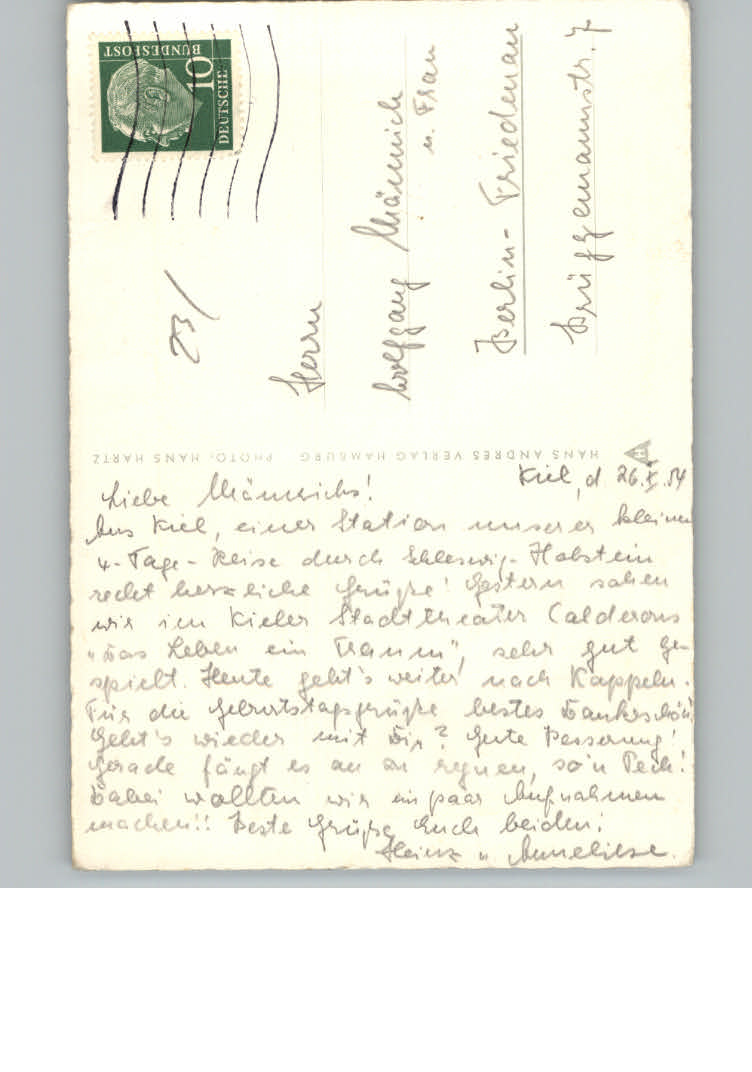 Kiel, d. 26.X.54
Liebe Männichs!
Aus Kiel, einer Station unserer kleinen
4-Tage-Reise durch Schleswig-Holstein
recht herzliche Grüße! Gestern sahen
wir im Kieler Stadttheater Calderons
"Das Leben ein Traum", sehr gut ge-
spielt. Heute geht's weiter nach Kappeln.
Für die Geburtstagsgrüße bestes Dankeschön!
Geht's wieder mit Dir? Gute Besserung!
Gerade fängt es an zu regnen, so'n Pech!
Dabei wollten wir ein paar Aufnahmen
machen!! Beste Grüße Euch beiden!
Heinz u. Anneliese.
DEUTSCHE
BUNDESPOST
10
Herrn
Wolfgang Männich
u. Frau
Berlin-Friedenau
Brüggemannstr. 7
HANS ANDRES VERLAG HAMBURG PHOTO: HANS HARTZ